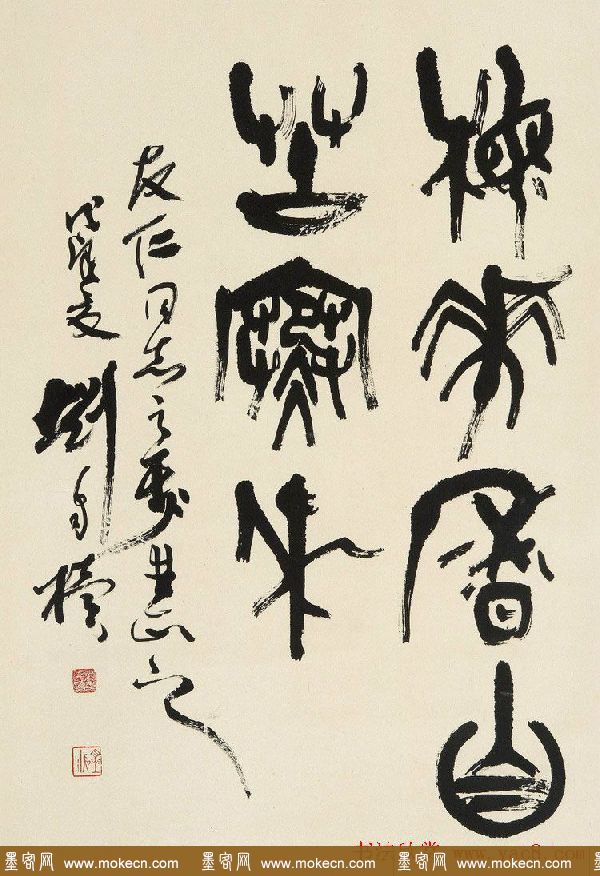 梅花香自
苦寒来
友仁同志之属正之
戊辰夏 劉自櫝
墨客网 www.mokecn.com 墨客网 www.mokecn.com 墨客网 www.mokecn.com